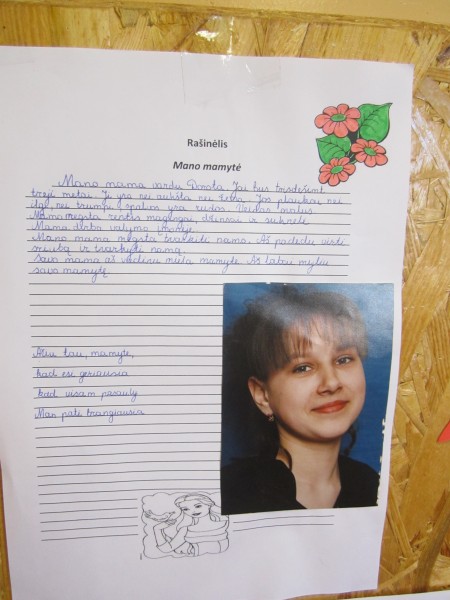 Rašinėlis
Mano mamytė
Mano mama vardu Donata. Jai bus trisdešimt
treji metai. Ji yra nei aukšta nei žema. Jos plaukai nei
ilgi nei trumpi, spalva yra rudos. Veidas mielas
Mama mėgsta rengtis maglonai, džinsai ir suknelė
Mama dirba valymo įmonėje.
Mano mama mėgsta tvarkytis namo. Aš padedu virti
sriubą ir tvarkyti namą.
Savo mamą aš vadinu miela mamyte. Aš labai myliu
savo mamytę.
Ačiu tau, mamyte,
kad esi geriausia
kad visam pasauly
Man pati brangiausia